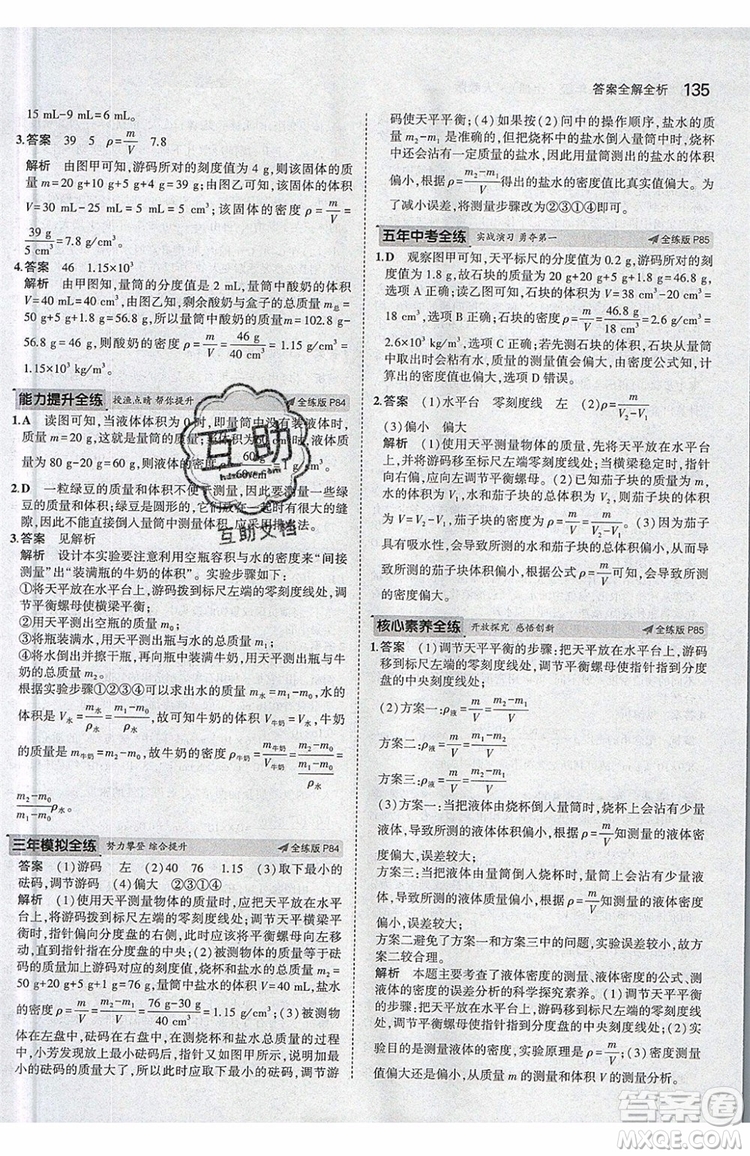 答案全解全析 135
15 mL-9 mL=6 mL。
3.答案 39 5 ρ=m/V 7.8
解析 由图甲可知,游码所对的刻度值为 4 g,则该固体的质量
m=20 g+10 g+5 g+4 g=39 g;由图乙可知,该固体的体积
V=15 cm³-10 cm³=5 cm³;该固体的密度为:ρ=m/V=
39 g/5 cm³=7.8 g/cm³。
4.答案 46 1.15×10³
解析 由图甲可知,量筒的分度值为 2 mL,量筒中酸奶的体积
V=40 mL=40 cm³,由图乙可知,剩余酸奶与盒子的总质量为
m剩=50 g+5 g+1.8 g=56.8 g,所以量筒中酸奶的质量m=102.8 g-
56.8 g=46 g,则酸奶的密度为ρ=m/V=46 g/40 cm³=1.15 g/cm³=
1.15×10³ kg/m³。
能力提升全练 投渔点睛 帮你提升 全练版 P84
1.A 读图可知,当液体体积为0时,即量筒中没有装液体时,
质量m=20 g,所以量筒的质量为20 g;
当液体体积为60 cm³
2.D 一粒绿豆的质量和体积不便于测量,因此应测量多粒绿
豆的质量和体积;绿豆是圆形的,它们之间有较大的缝隙,不
能直接用量筒测量体积,应采用
3.答案 见解析
解析 设计本实验要注意利用空瓶容积与水的密度来“间接
测量”出“装满瓶的牛奶的体积”。实验步骤如下:
①将天平放在水平台上,将游码拨到标尺左端的零刻度线处,
调节平衡螺母使横梁平衡;
②用天平测量出空瓶的质量 m₀;
③将空瓶装满水,用天平测量出水和瓶的总质量 m₁;
④将水倒出并擦干瓶,再向瓶内装满牛奶,用天平测量出瓶和
牛奶的总质量为 m₂。
根据实验步骤①②③④可以求出水的质量 m水=m₁-m₀,水的
体积是 V水=m水/ρ水=(m₁-m₀)/ρ水,故可知牛奶的体积 V牛奶=(m₁-m₀)/ρ水,牛奶
的质量是 m牛奶=m₂-m₀,故牛奶的密度 ρ牛奶=m牛奶/V牛奶=(m₂-m₀)/((m₁-m₀)/ρ水)=
(m₂-m₀)/(m₁-m₀) ρ水。
三年模拟全练 努力攀登 综合提升 全练版 P84
答案 (1)游码 左 (2)40 76 1.15 (3)取下最小的
砝码,调节游码 (4)偏大 ②③①④
解析 (1)使用天平测量物体的质量时,应把天平放在水平
台上,将游码拨到标尺左端的零刻度线处;调节天平横梁平
衡时,指针向哪边偏,平衡螺母就要向偏的反方向移动,
直到横梁平衡;(2)被测物体的质量等于砝码的质量加上
游码在标尺上的示数,烧杯和盐水的总质量为
50 g+20 g+5 g+1 g=76 g,量筒中盐水的体积为40 mL=
40 cm³,盐水的密度ρ=m/V=(76 g-30 g)/40 cm³=1.15 g/cm³;(3)被测
物体在左盘中,砝码在右盘中,在测烧杯和盐水总质量的过程
中,小芳发现加上最小砝码后,指针又如图甲所示,说明右盘
偏重,小芳应取下最小的砝码,再移动游码,即调节游
码使天平平衡;(4)如果按(2)问中的操作顺序,盐水的质
量测量没有误差,但把烧杯中盐水倒入量筒中时,烧杯中
还会沾有一定质量的盐水,因此用量筒测出的盐水体积
偏小,根据ρ=m/V得出的盐水的密度值与真实值相比偏大。
为了减小误差,将测量步骤改为②③①④。
五年中考全练 实战演习 勇夺第一 全练版 P85
1.D 观察图甲可知,天平标尺的分度值为 0.2 g,游码所对的
刻度值为 1.8 g,故石块的质量为 20 g+20 g+5 g+1.8 g=46.8 g,
选项 A 正确;读乙图可知,石块的体积为 V=38 cm³-20 cm³=
18 cm³,选项 B 正确;石块的密度为ρ=m/V=46.8 g/18 cm³=2.6 g/cm³=
2.6×10³ kg/m³,选项 C 正确;若先测石块的体积,从量筒中
取出时会粘有水,质量的测量值偏大,由密度公式可知,计
算出的密度值偏大,选项 D 错误。
2.答案 (1)水平台 零刻度线 左 (2)ρ=m/(V₂-V₁)
(3)偏小 偏大
解析 (1)使用天平测量物体的质量前,应把天平放在水平台
上,将游码移至标尺左端的零刻度线处;当横梁稳定时,指
针向右偏,应将平衡螺母向左调节。(2)已知茄子块的体积
V=V₂-V₁,则茄子块的密度为ρ=m/V=m/(V₂-V₁)。(3)由于茄子块
具有吸水性,放入水中后会吸水,使所测的总体积偏小,从而
导致所测的茄子块体积偏小,根据ρ=m/V可知,茄子块体积偏
小会导致所测的密度偏大。
核心素养全练 开放探究 感悟创新 全练版 P85
1.答案 (1)调节天平平衡的步骤:把天平放在水平台上,游码
移到标尺左端的零刻度线处;调节平衡螺母使指针指到分度
盘的中央刻度线处;
(2)方案一:ρ液=m/V=(m₂-m₁)/V
方案二:ρ液=m/V=(m₂-m₁)/V
方案三:ρ液=m/V=(m₂-m₁)/V
(3)方案一:当把液体由烧杯倒入量筒时,烧杯上会沾有少量
液体,导致所测的液体体积偏小,根据ρ=m/V可知,测量的密
度偏大,误差较大;
方案三:当把液体由量筒倒入烧杯时,量筒上会沾有少量液
体,导致所测的液体质量偏小,根据ρ=m/V可知,测量的液体密度
偏小,误差较大;
方案二避免了方案一和方案三中出现的问题,误差较小,故方
案二较合理。
解析 本题主要考查了液体密度的测量、液体密度的公式、测
液体的密度误差分析的科学探究素养。(1)调节天平平衡
的步骤:把天平放在水平台上,游码移到标尺左端的零刻度线
处;调节平衡螺母使指针指到分度盘的中央刻度线处。(2)实
验目的是测量液体的密度,实验原理是ρ=m/V。(3)测量误差主
要从液体的质量 m 的测量和体积 V 的测量分析。
互助
互助文档
答案圈
MXQE.COM